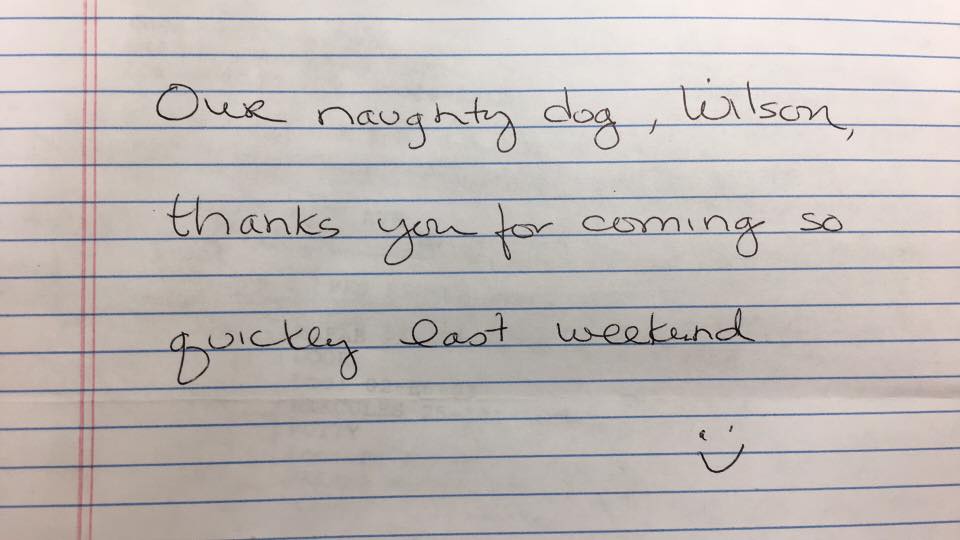 Our naughty dog, Wilson,
thanks you for coming so
quickly last weekend